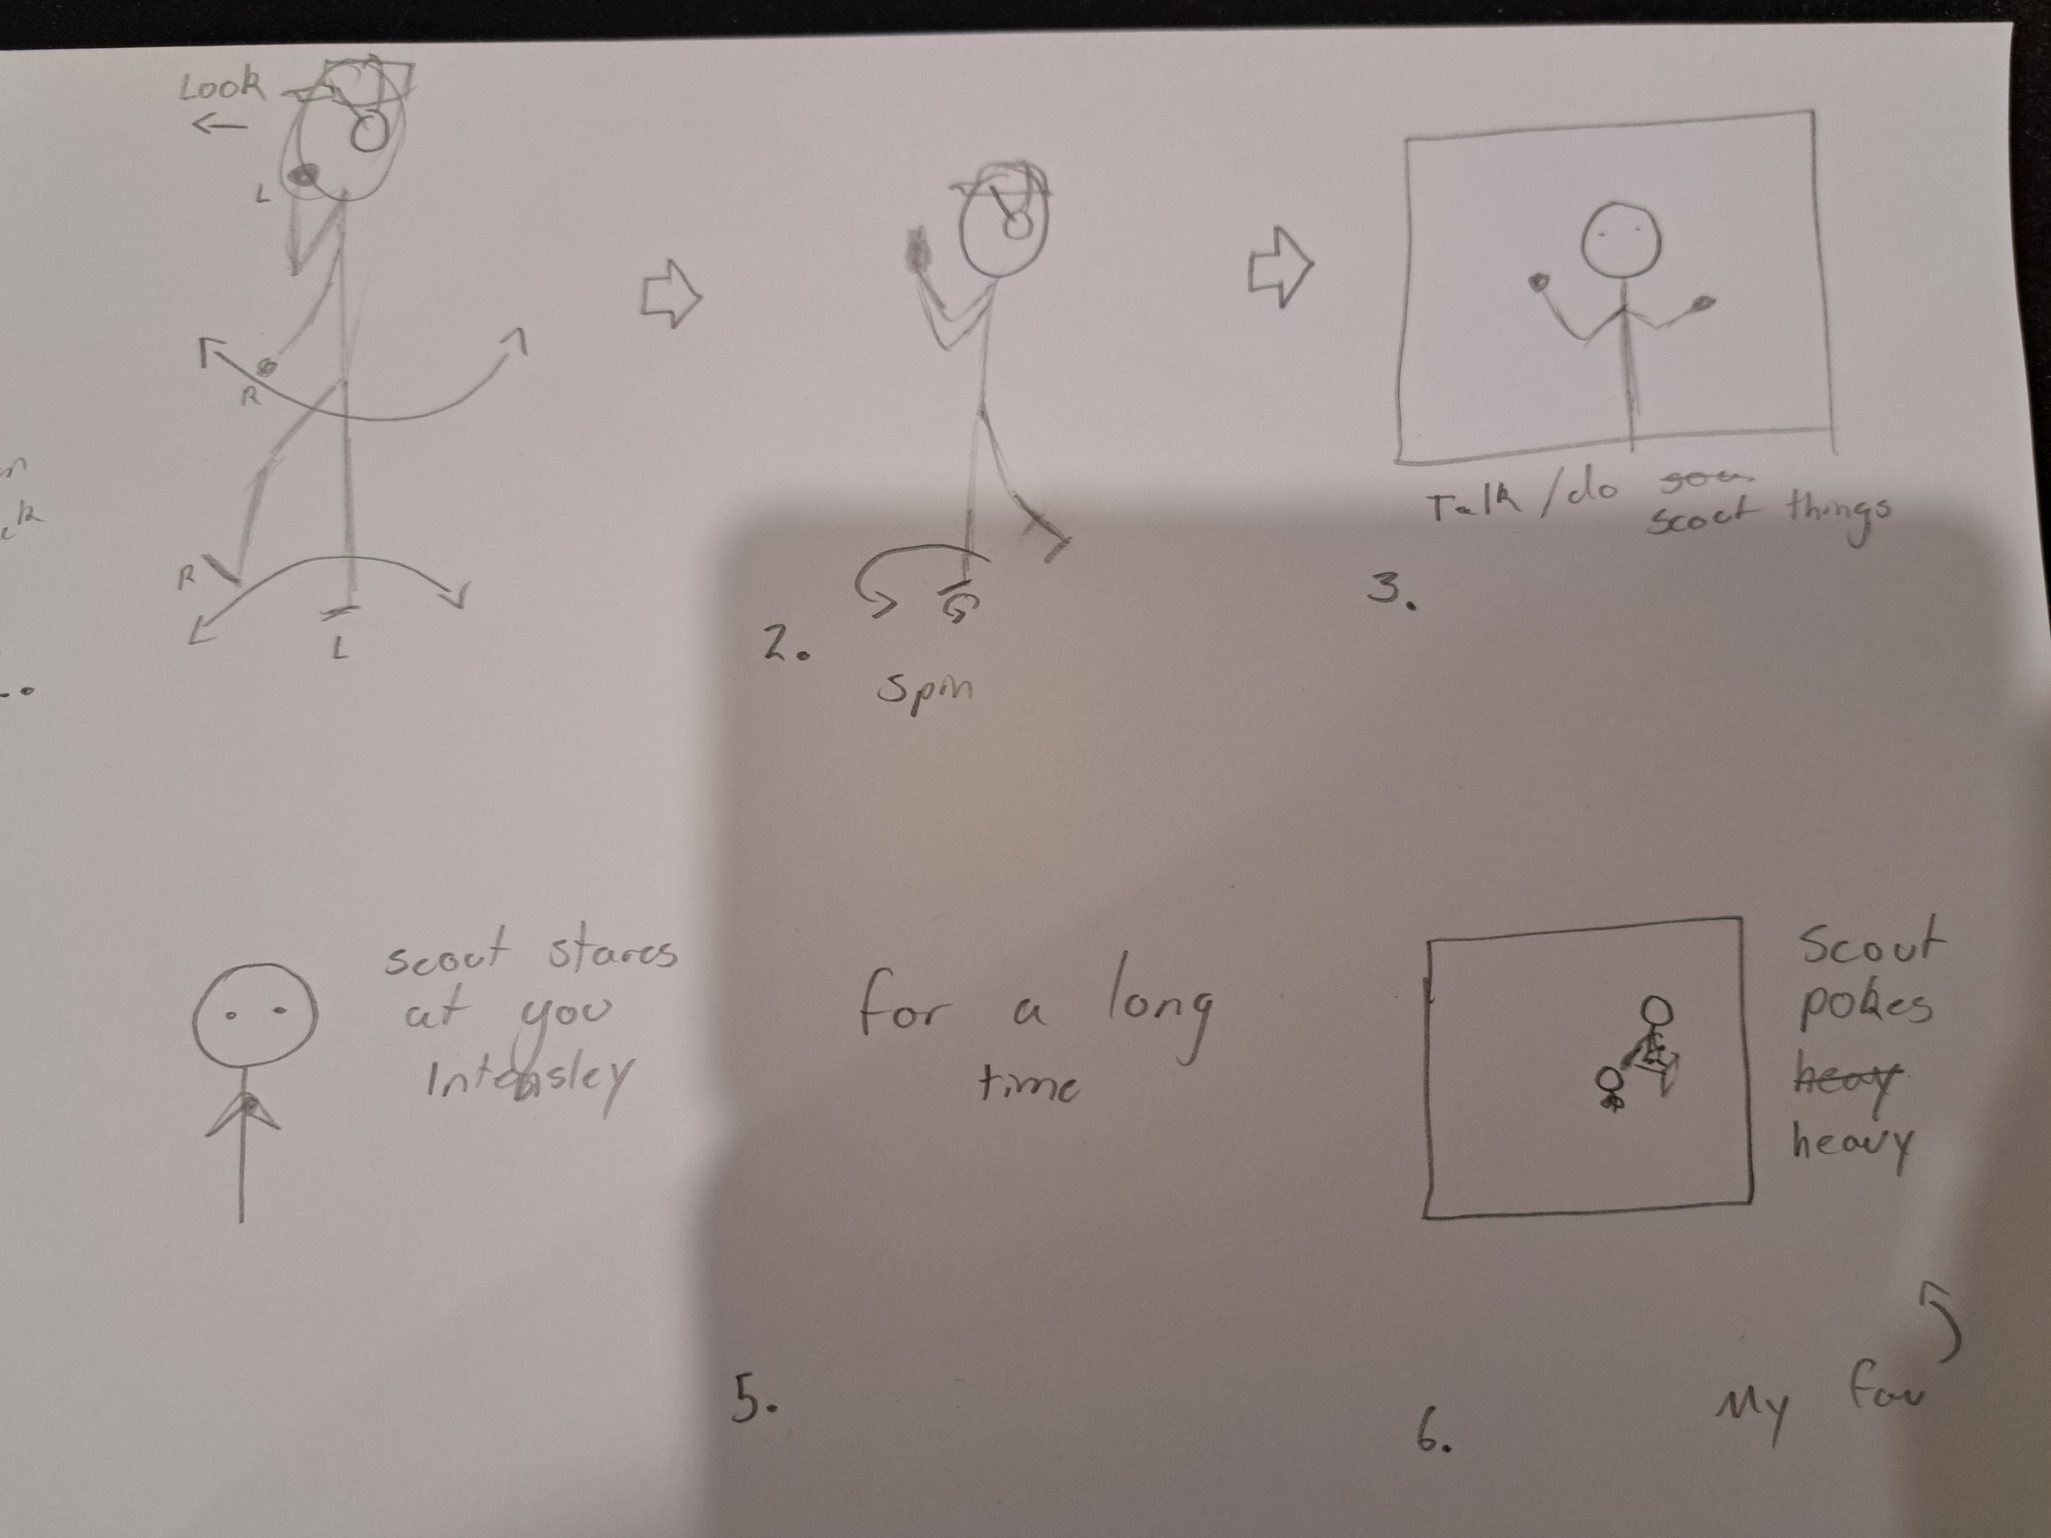 Look
L
R
R
L
2.
Spin
3.
Talk/do
scout things
scout stares
at you
Intensley
5.
for a long
time
6.
Scout
pokes
heavy
heavy
My fav